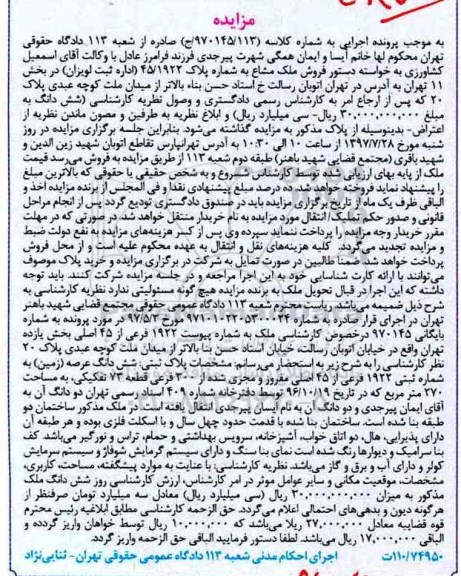 مزایده
به موجب پرونده اجرایی به شماره کلاسه (۹۷۰۱۴۵/۱۱۳/ج) صادره از شعبه ۱۱۳ دادگاه حقوقی
تهران محکوم لها خانم آیسا و ایمان همگی شهرت پیرجدی فرزند فرامرز عادل با وکالت آقای اسمعیل
کشاورزی به خواسته دستور فروش ملک مشاع به شماره پلاک ۴۵/۱۹۲۲ (اداره ثبت لویزان) در بخش
۱۱ تهران به آدرس در تهران اتوبان رسالت خ استاد حسن بناء بالاتر از میدان ملت کوچه عبدی پلاک
۲۰ که پس از ارجاع امر به کارشناس رسمی دادگستری و وصول نظریه کارشناسی (شش دانگ به
مبلغ ۳۰,۰۰۰,۰۰۰,۰۰۰ ریال- سی میلیارد ریال) و ابلاغ نظریه به طرفین و مصون ماندن نظریه از
اعتراض- بدینوسیله از پلاک مذکور به مزایده گذاشته می‌شود. بنابراین جلسه برگزاری مزایده در روز
شنبه مورخ ۱۳۹۷/۷/۲۸ از ساعت ۱۰ الی ۱۰:۳۰ به آدرس تهرانپارس تقاطع اتوبان شهید زین الدین و
شهید باقری (مجتمع قضایی شهید باهنر) طبقه دوم شعبه ۱۱۳ از طریق مزایده به فروش می‌رسد قیمت
ملک از پایه بهای ارزیابی شده توسط کارشناس شروع و به شخص حقیقی یا حقوقی که بالاترین مبلغ
را پیشنهاد نماید فروخته خواهد شد. ده درصد مبلغ پیشنهادی نقدا و فی المجلس از برنده مزایده اخذ و
الباقی ظرف یک ماه از تاریخ برگزاری مزایده باید در صندوق دادگستری تودیع گردد پس از انجام مراحل
قانونی و صدور حکم تملیک/ انتقال مورد مزایده به نام خریدار منتقل خواهد شد. در صورتی که در مهلت
مقرر خریدار وجه مزایده را پرداخت ننماید سپرده وی پس از کسر هزینه‌های مزایده به نفع دولت ضبط
و مزایده تجدید می‌گردد. کلیه هزینه‌های نقل و انتقال به عهده محکوم علیه است و از محل فروش
پرداخت خواهد شد. ضمنا طالبین در صورت تمایل به شرکت در برگزاری مزایده و خرید پلاک موصوف
می‌توانند با ارائه کارت شناسایی خود به این اجرا مراجعه و در جلسه مزایده شرکت کنند. باید توجه
داشته که این اجرا در قبال تحویل ملک به برنده مزایده هیچ گونه مسئولیتی ندارد نظریه کارشناسی به
شرح ذیل ضمیمه می‌باشد. ریاست محترم شعبه ۱۱۳ دادگاه عمومی حقوقی مجتمع قضایی شهید باهنر
تهران در اجرای قرار صادره به شماره مورخ ۹۷/۵/۲ در مورد پرونده به شماره
بایگانی ۹۷۰۱۴۵ درخصوص کارشناسی ملک به شماره پیوست ۱۹۲۲ فرعی از ۴۵ اصلی بخش یازده
تهران واقع در خیابان اتوبان رسالت، خیابان استاد حسن بنا بالاتر از میدان ملت کوچه عبدی پلاک ۲۰
نظر کارشناسی را به شرح زیر به استحضار می‌رسانم: مشخصات پلاک ثبتی: شش دانگ عرصه (زمین) به
شماره ثبتی ۱۹۲۲ فرعی از ۴۵ اصلی مفروز و مجزی شده از ۳۰۰ فرعی قطعه ۷۳ تفکیکی، به مساحت
۲۷۰ متر مربع که در تاریخ ۹۶/۱۰/۱۹ توسط دفترخانه شماره ۴۰۹ اسناد رسمی تهران دو دانگ آن به
آقای ایمان پیرجدی و دو دانگ آن به نام ایسان پیرجدی انتقال یافته است. در ملک مذکور ساختمان دو
طبقه بنا شده است. ساختمان بنا شده با قدمت حدود چهل سال و با اسکلت فلزی بوده و هر طبقه آن
دارای پذیرایی، هال، دو اتاق خواب، آشپزخانه، سرویس بهداشتی و حمام، تراس و نورگیر می‌باشد. کف
بنا سرامیک و دیوارها رنگ شده است نمای بنا سنگ و دارای سیستم گرمایش شوفاژ و سیستم سرمایش
کولر و دارای آب و برق و گاز می‌باشد. نظریه کارشناسی: با عنایت به موارد پیشگفته، مساحت، کاربری،
مشخصات، موقعیت مکانی و سایر عوامل موثر در امر کارشناس، ارزش کارشناسی روز شش دانگ ملک
مذکور به میزان ۳۰,۰۰۰,۰۰۰,۰۰۰ ریال (سی میلیارد ریال) معادل سه میلیارد تومان صرفنظر از
هرگونه دیون و بدهی‌های احتمالی اعلام می‌گردد. حق الزحمه کارشناسی مطابق ابلاغیه رئیس محترم
قوه قضاییه معادل ۲۷,۰۰۰,۰۰۰ ریال می‌باشد که ۱۰,۰۰۰,۰۰۰ ریال توسط خواهان واریز گردده و
الباقی ۱۷,۰۰۰,۰۰۰ ریال می‌باشد. لطفا دستور فرمایید الباقی حق الزحمه واریز گردد.
۱۱۰/۷۴۹۵۰ت اجرای احکام مدنی شعبه ۱۱۳ دادگاه عمومی حقوقی تهران- ثنایی‌نژاد